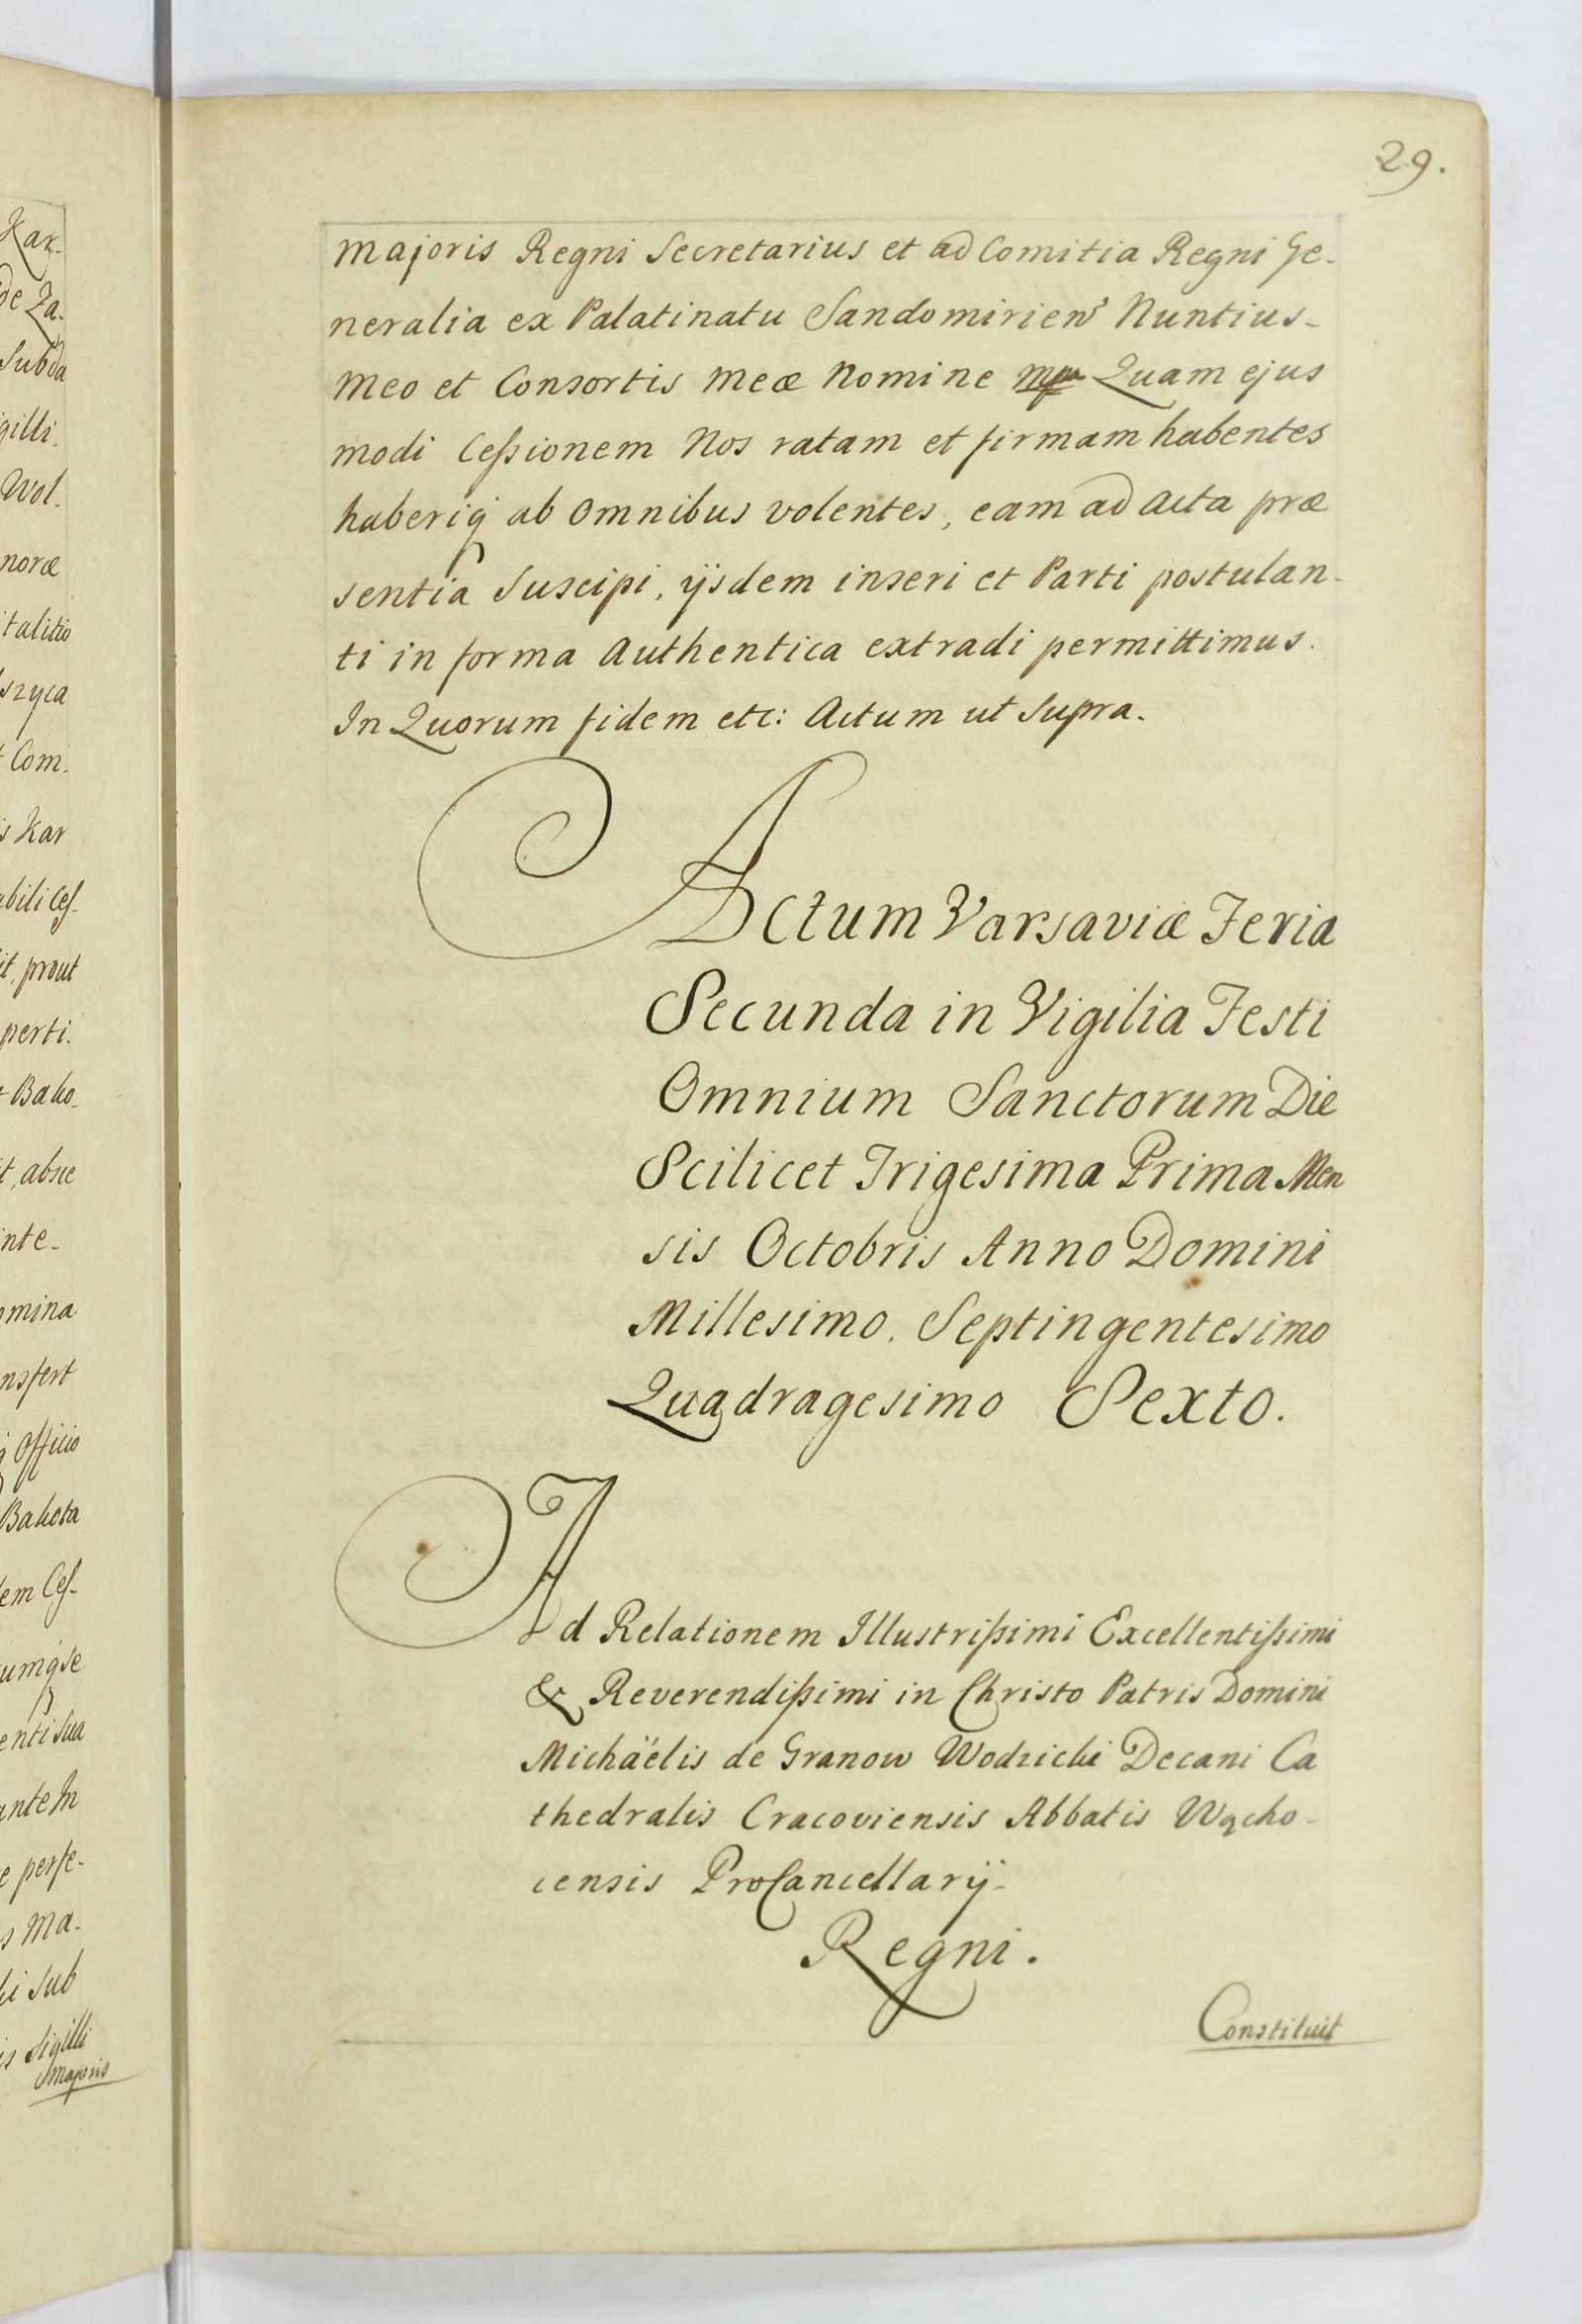 Kax-
de Za-
Subda
gilli.
Wol.
noræ
italitio
szyca
Com.
s Kar
abili Ces-
it, prout
perti.
Bako-
it, absce
inte-
omina
nsfert
Officio
Bakota
dem Ces-
umqse
enti sua
ante In
e perfe-
s Ma-
ki sub
is Sigilli
Majoris
29.
Majoris Regni Secretarius et ad Comitia Regni Ge-
neralia ex Palatinatu Sandomirien̄ Nuntius-
Meo et Consortis Meæ Nomine mpa Quam ejus
modi Ceſsionem Nos ratam et firmam habentes
haberiq́ ab Omnibus volentes, eam ad Acta præ
sentia Suscipi, ijsdem inseri et Parti postulan-
ti in forma Authentica extradi permittimus.
In Quorum fidem etc: Actum ut Supra.
Actum Varsaviæ Feria
Secunda in Vigilia Festi
Omnium Sanctorum Die
Scilicet Trigesima Prima Men
sis Octobris Anno Domini
Millesimo. Septingentesimo
Quadragesimo Sexto.
Ad Relationem Illustriſsimi Excellentiſsimi
& Reverendiſsimi in Christo Patris Domini
Michäelis de Granow Wodzicki Decani Ca
thedralis Cracoviensis Abbatis Wącho-
censis ProCancellarij-
Regni.
Constituit